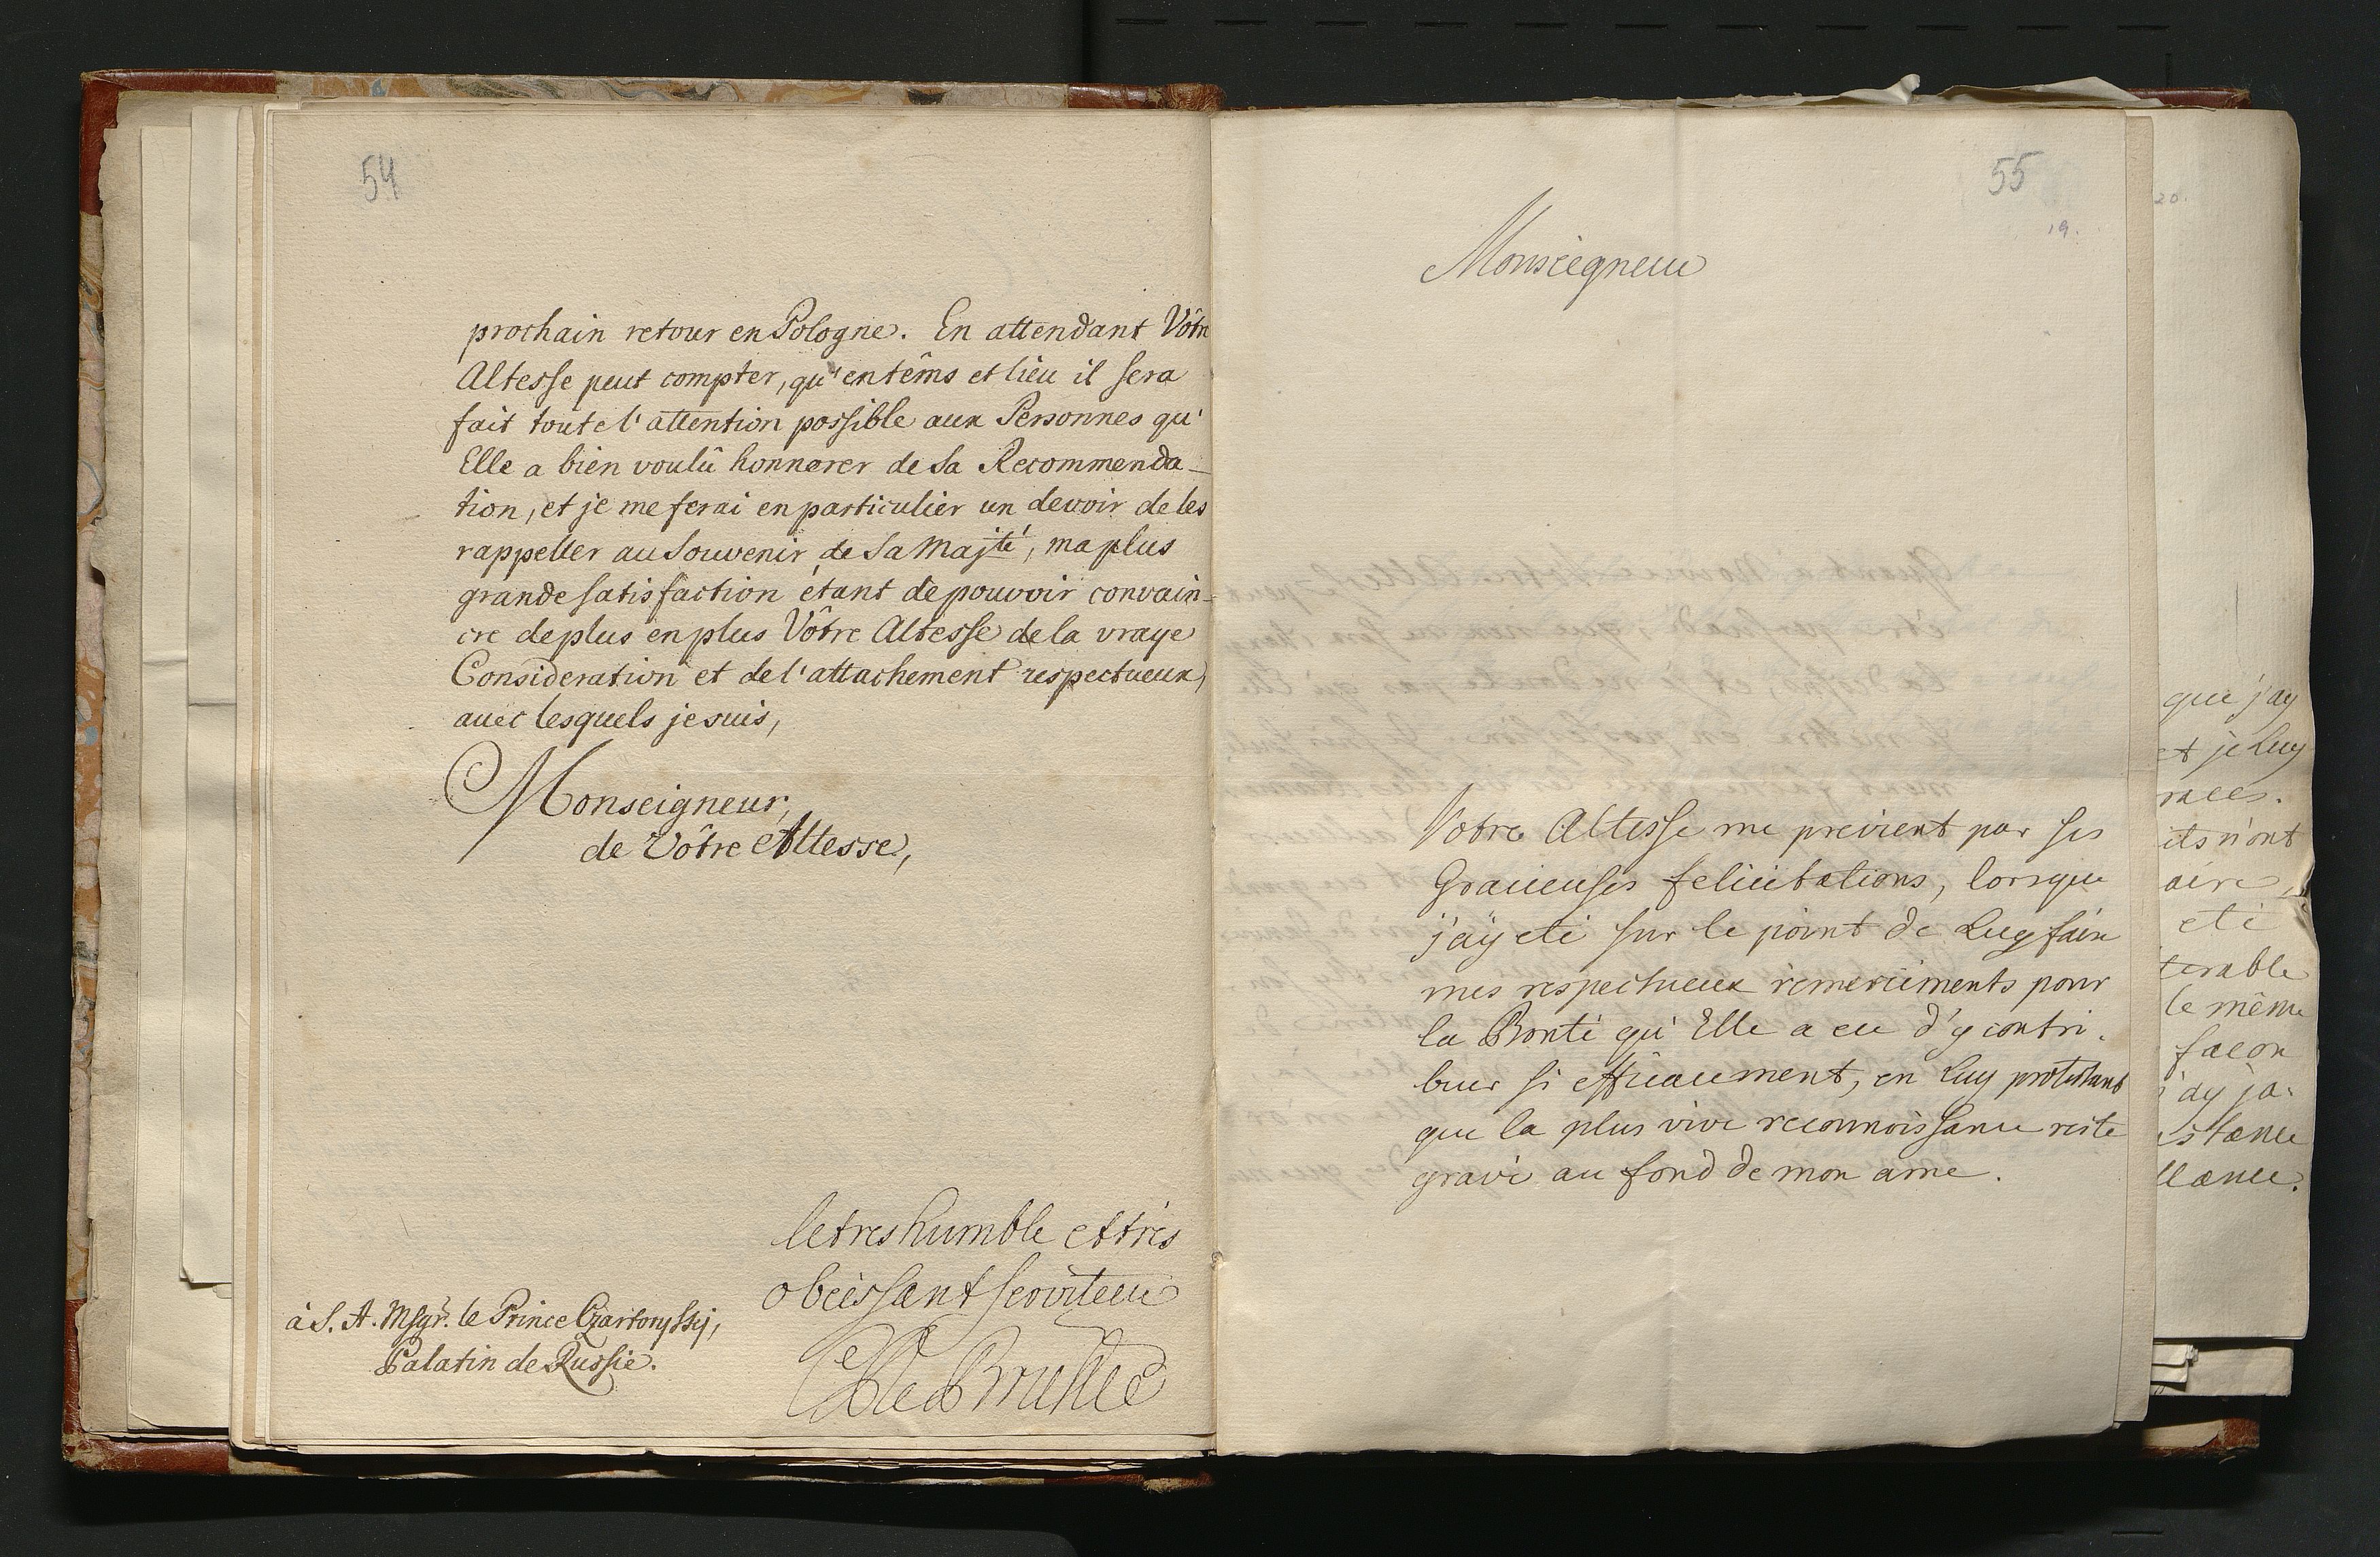 54
prochain retour en Pologne. En attendant Vôtre
Altesse peut compter, qu'en têms et lieu il sera
fait toute l'attention possible aux Personnes qu'
Elle a bien voulû honnorer de sa Recommenda-
tion, et je me ferai en particulier un devoir de les
rappeller au souvenir de Sa Majté, ma plus
grande satisfaction étant de pouvoir convain-
cre de plus en plus Vôtre Altesse de la vraye
Consideration et de l'attachement respectueux,
avec lesquels je suis,
Monseigneur,
de Vôtre Altesse,
le tres humble et très
obeissant serviteur
à S. A. Msgr. le Prince Czartoryski,
Palatin de Russie.
CdeBruhl
55
19.
Monseigneur
Votre Altesse me previent par ses
Gracieuses felicitations, lorsque
j'aÿ eté sur le point de Luy faire
mes respectueux remerciments pour
la Bonté qu'Elle a eu d'y contri-
buer si efficacement, en Luy protestant
que la plus vive reconnoissance reste
gravé au fond de mon ame.
20.
que j'ay
et je Luy
races.
ils n'ont
aire,
eté
terable
le même
façon
j'ay ja-
stance
llance.